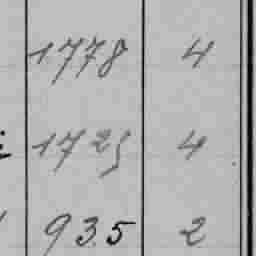 1778 4
1725 4
935 2